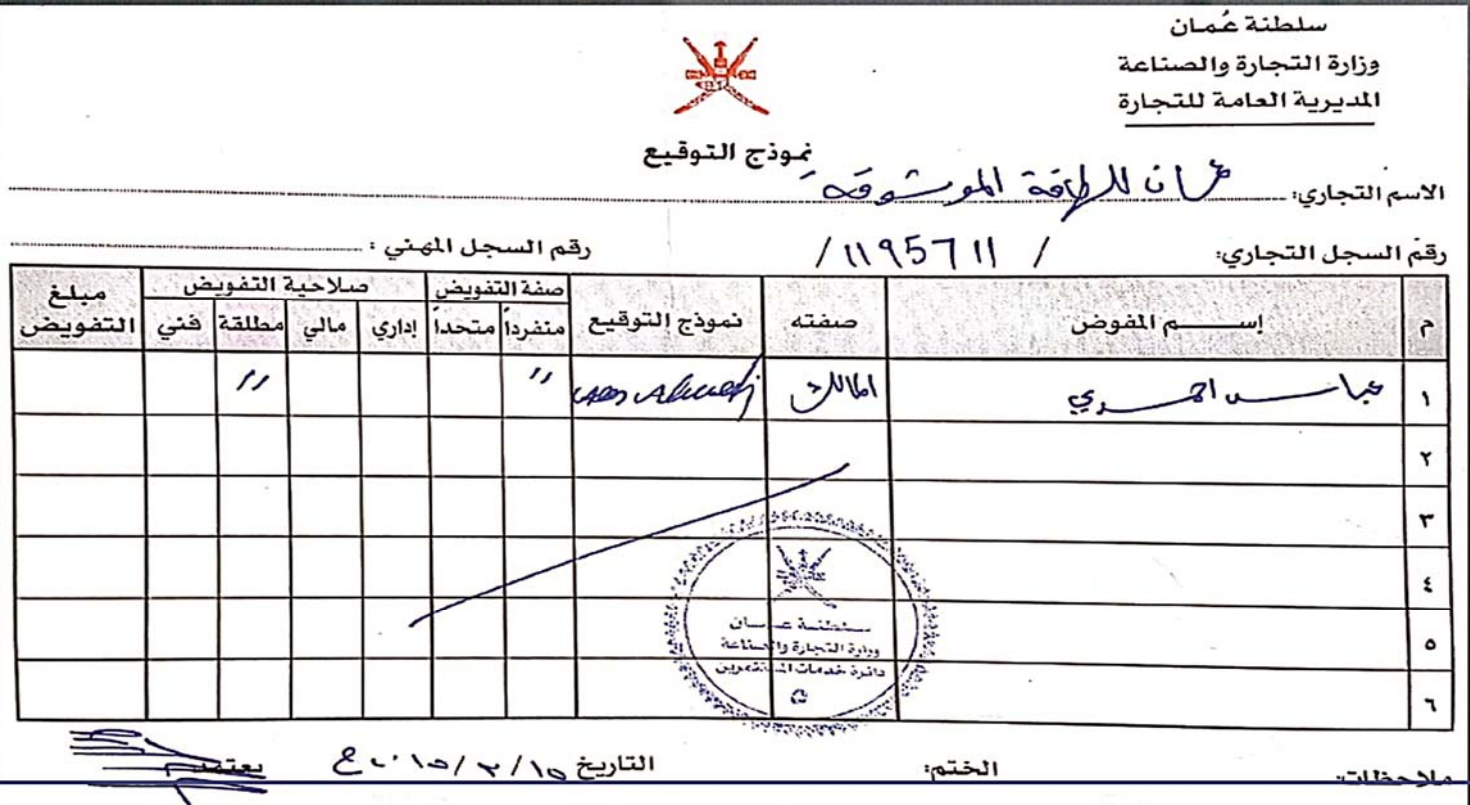 سلطنة عُمان
وزارة التجارة والصناعة
المديرية العامة للتجارة
نموذج التوقيع
الاسم التجاري: عمان للطاقة الموثوقة
رقم السجل التجاري: / 1195711 /
رقم السجل المهني :
م إســـم المفوض صفته نموذج التوقيع صفة التفويض صلاحية التفويض مبلغ التفويض
منفرداً متحداً إداري مالي مطلقة فني
١ عباس احمدي المالك " "
٢
٣
٤
٥
٦
سلطنة عمان
وزارة التجارة والصناعة
دائرة خدمات المستثمرين
ملاحظات: الختم: التاريخ ١٥/٢/٢٠١٥ع يعتمد